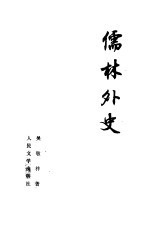 儒林外史
吴敬梓著
人民文学出版社